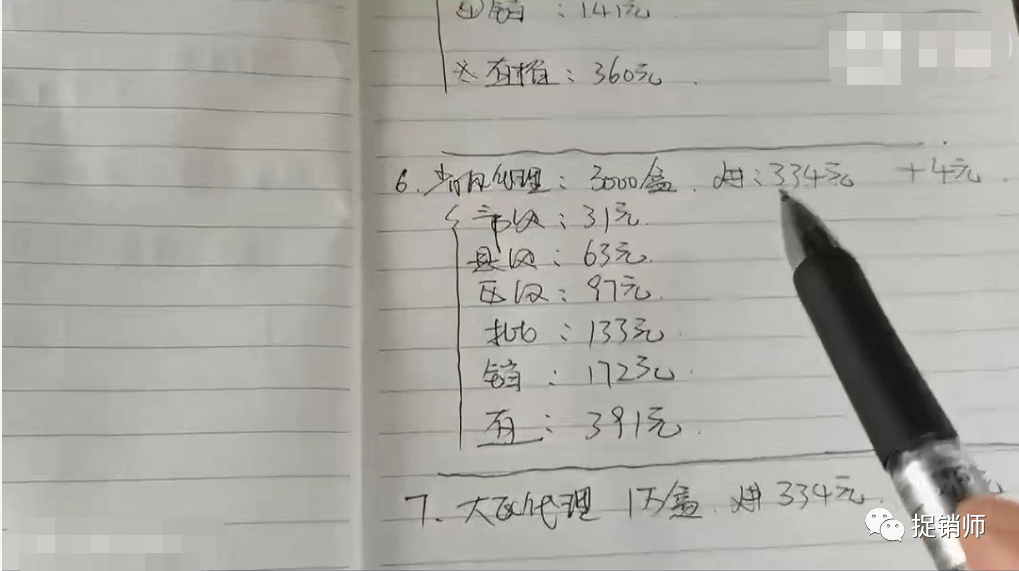 ④销：141元
直销：360元
6. 省级代理：3000盒 进：334元 +4元
市级：31元
县级：63元
区级：97元
批：133元
销：172元
直：391元
7. 大区代理 1万盒 进334元
捉销师